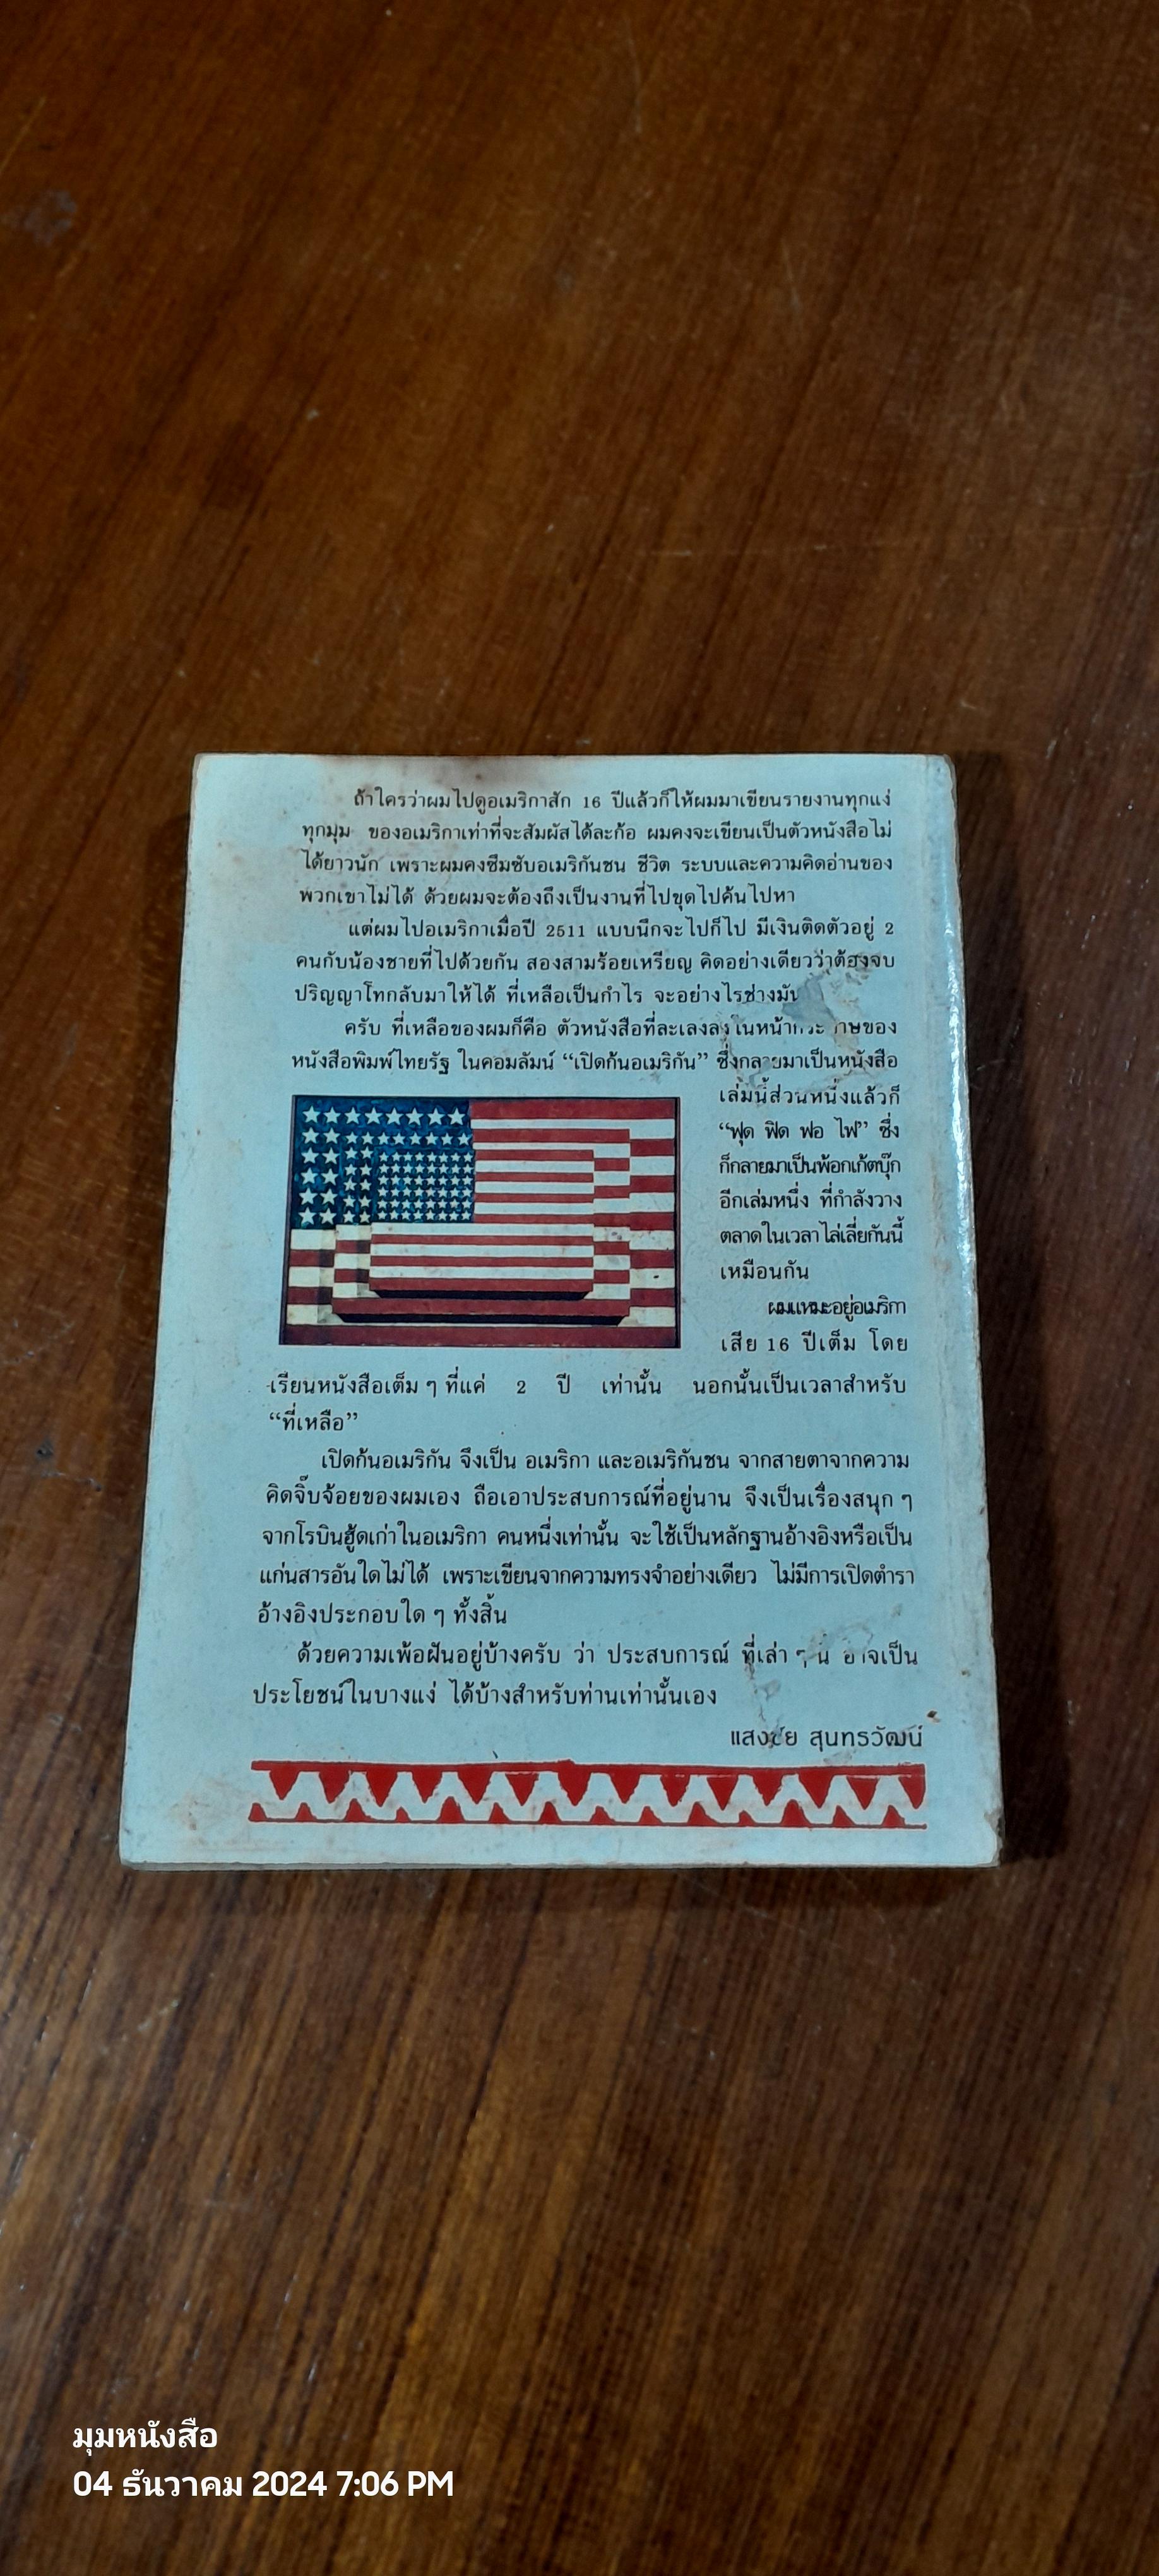 ถ้าใครว่าผมไปดูอเมริกาสัก 16 ปีแล้วก็ให้ผมมาเขียนรายงานทุกแง่
ทุกมุม ของอเมริกาเท่าที่จะสัมผัสได้ละก้อ ผมคงจะเขียนเป็นตัวหนังสือไม่
ได้ยาวนัก เพราะผมคงซึมซับอเมริกันชน ชีวิต ระบบและความคิดอ่านของ
พวกเขาไม่ได้ ด้วยผมจะต้องถึงเป็นงานที่ไปขุดไปค้นไปหา
แต่ผมไปอเมริกาเมื่อปี 2511 แบบนึกจะไปก็ไป มีเงินติดตัวอยู่ 2
คนกับน้องชายที่ไปด้วยกัน สองสามร้อยเหรียญ คิดอย่างเดียวว่าต้องจบ
ปริญญาโทกลับมาให้ได้ ที่เหลือเป็นกำไร จะอย่างไรช่างมัน
ครับ ที่เหลือของผมก็คือ ตัวหนังสือที่ละเลงลงในหน้ากระดาษของ
หนังสือพิมพ์ไทยรัฐ ในคอมลัมน์ “เปิดก้นอเมริกัน” ซึ่งกลายมาเป็นหนังสือ
เล่มนี้ส่วนหนึ่งแล้วก็
“ฟุด ฟิด ฟอ ไฟ” ซึ่ง
ก็กลายมาเป็นพ้อกเก้ตบุ๊ก
อีกเล่มหนึ่ง ที่กำลังวาง
ตลาดในเวลาไล่เลี่ยกันนี้
เหมือนกัน
ผมแหมะอยู่อเมริกา
เสีย 16 ปีเต็ม โดย
เรียนหนังสือเต็ม ๆ ที่แค่ 2 ปี เท่านั้น นอกนั้นเป็นเวลาสำหรับ
“ที่เหลือ”
เปิดก้นอเมริกัน จึงเป็น อเมริกา และอเมริกันชน จากสายตาจากความ
คิดจิ๊บจ้อยของผมเอง ถือเอาประสบการณ์ที่อยู่นาน จึงเป็นเรื่องสนุก ๆ
จากโรบินฮู้ดเก่าในอเมริกา คนหนึ่งเท่านั้น จะใช้เป็นหลักฐานอ้างอิงหรือเป็น
แก่นสารอันใดไม่ได้ เพราะเขียนจากความทรงจำอย่างเดียว ไม่มีการเปิดตำรา
อ้างอิงประกอบใด ๆ ทั้งสิ้น
ด้วยความเพ้อฝันอยู่บ้างครับ ว่า ประสบการณ์ ที่เล่า ๆ นี้ อาจเป็น
ประโยชน์ในบางแง่ ได้บ้างสำหรับท่านเท่านั้นเอง
แสงชัย สุนทรวัฒน์
มุมหนังสือ
04 ธันวาคม 2024 7:06 PM